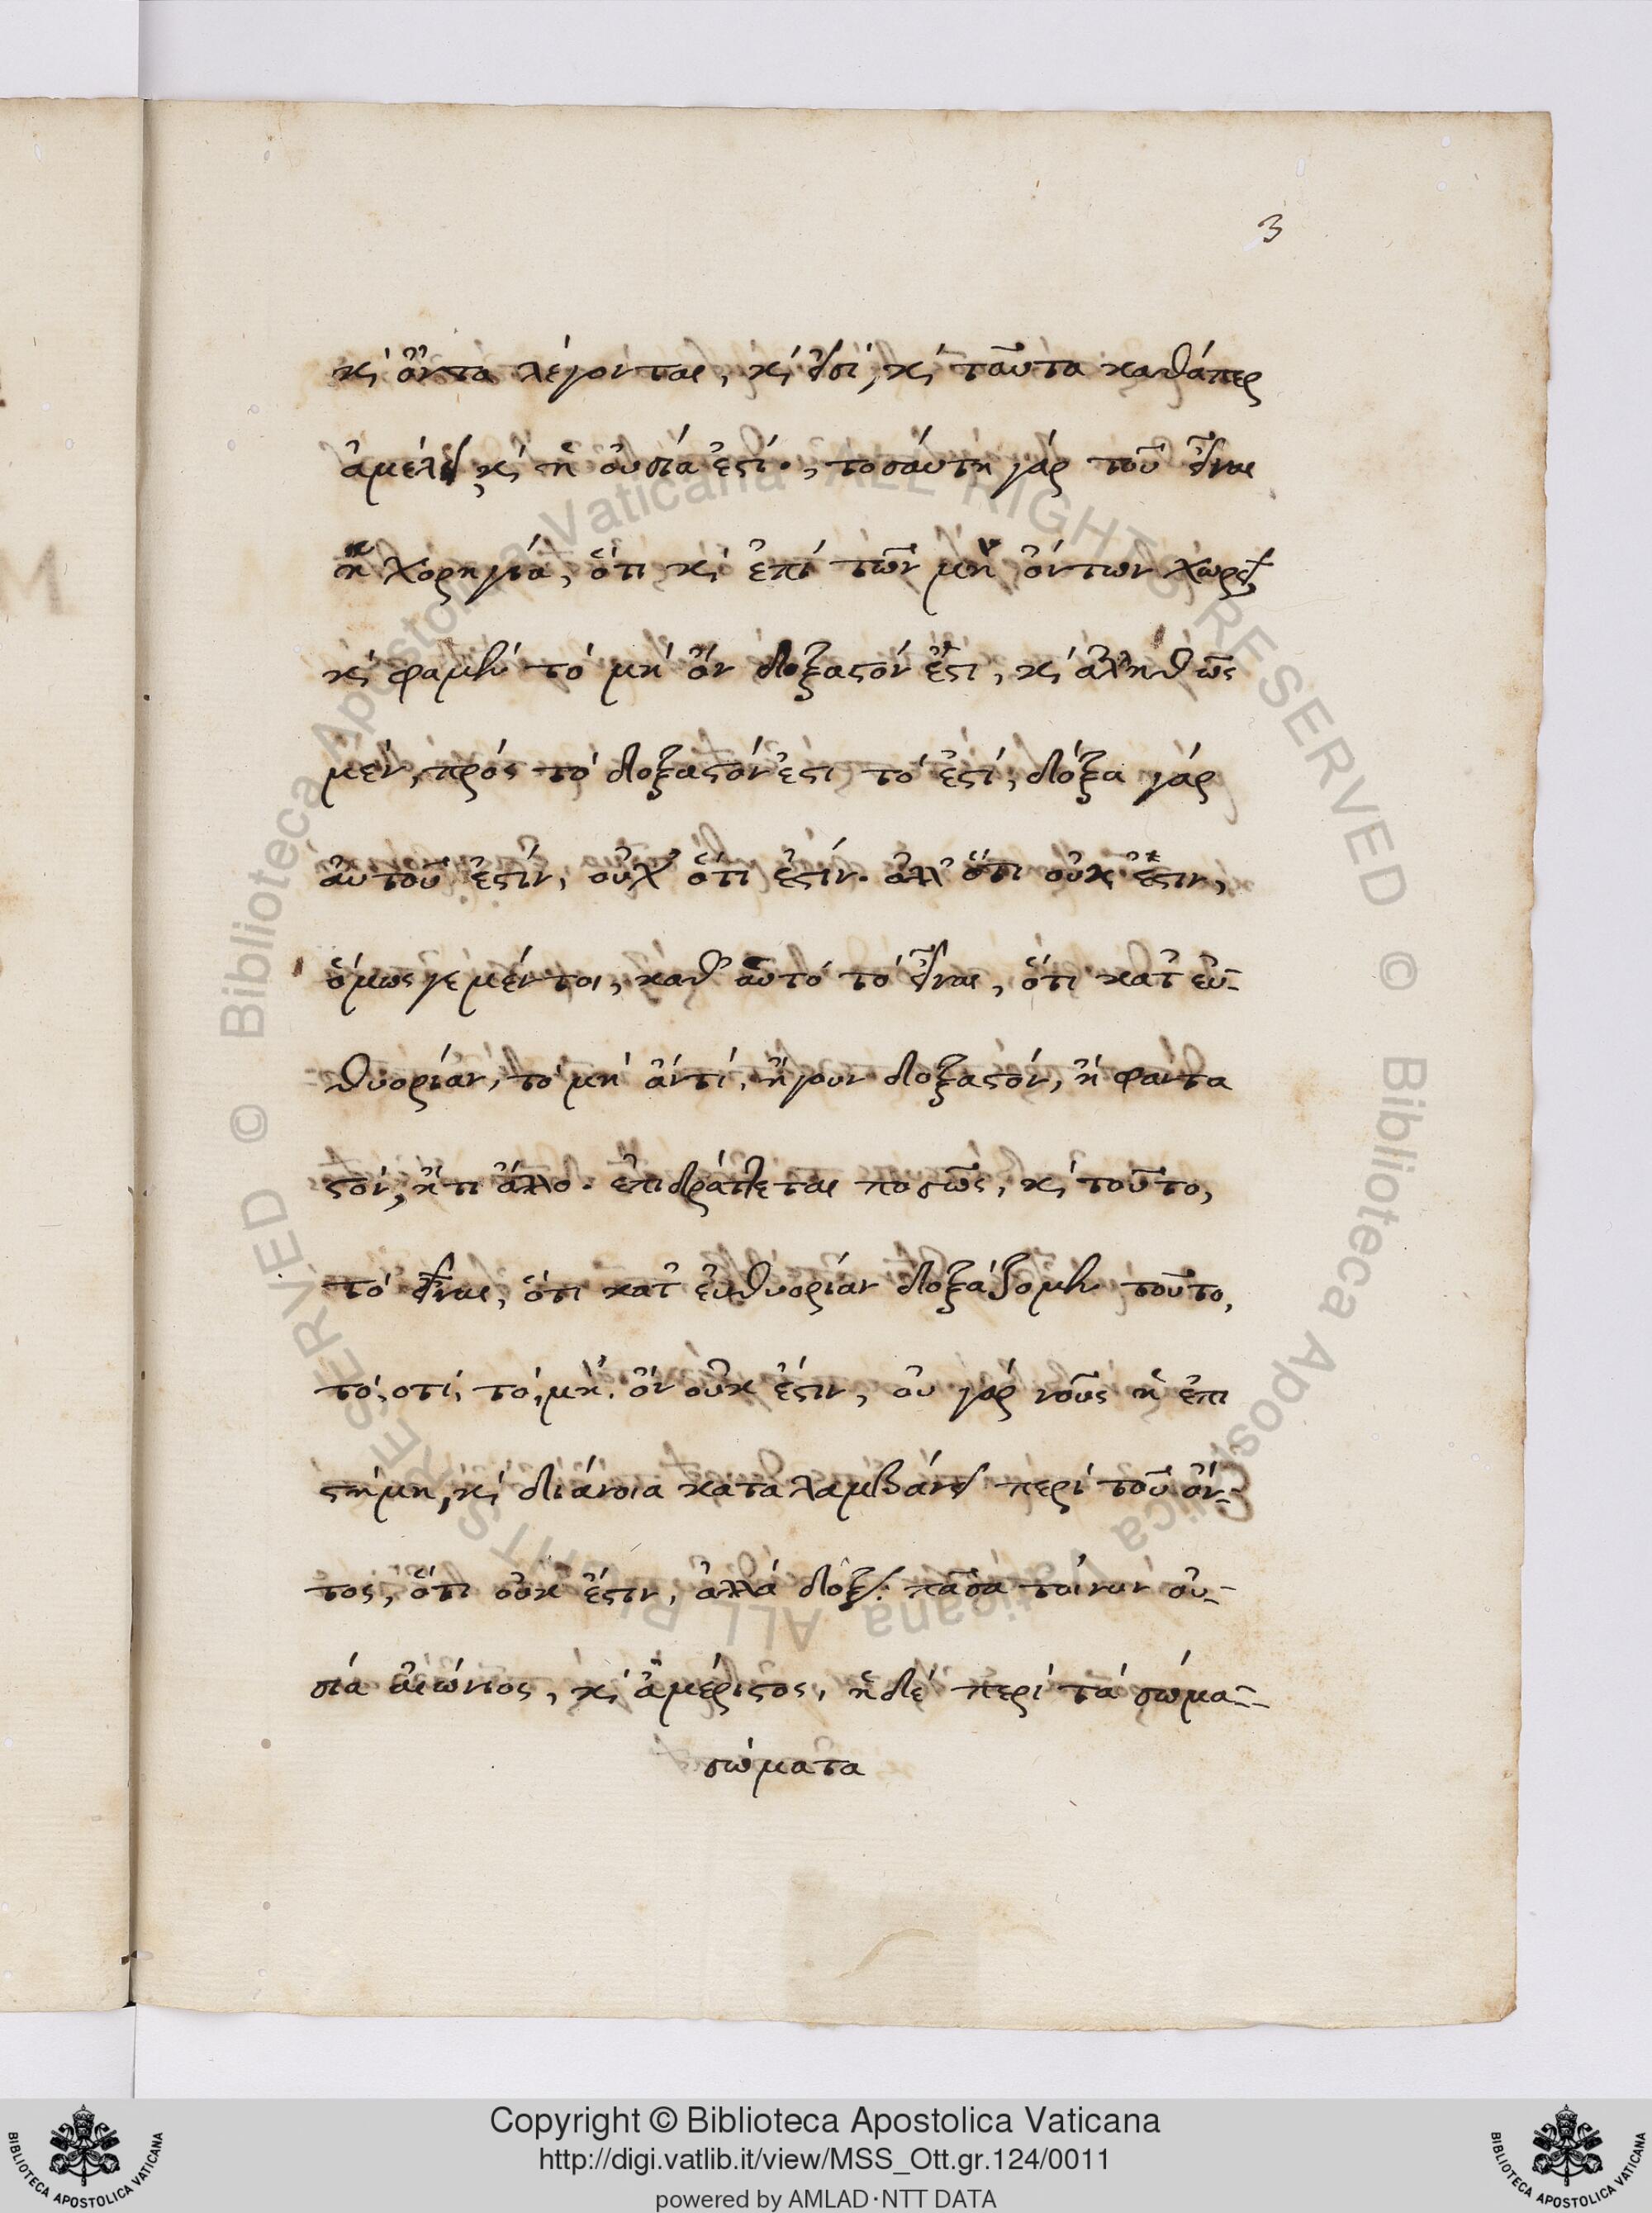 3
κ̀ ὄντα λέγονται, κ̀ εἰσί, κ̀ ταῦτα καθάπερ
ἀμέλει κ̀ ἡ οὐσία ἐστί., τοσαύτη γάρ τοῦ εἶναι
ἡ χορηγία, ὅτι κ̀ ἐπί τῶν μὴ ὄντων χωρεῖ,
κ̀ φαμέν τό μή ὄν δοξαστόν ἐστι, κ̀ ἀληθῶς
μέν, πρός τό δοξαστόν ἐστι τό ἐστί, δόξα γάρ
αὐτοῦ ἐστίν, οὐχ' ὅτι ἐστίν. ἀλλ' ὅτι οὐκ ἔστιν,
ὅμως γε μέντοι, καθ' αὑτό τό εἶναι, ὅτι κατ' εὐ-
θυορίαν, τό μή ἀντί, ἤγουν δοξαστόν, ἤ φαντα
στόν, ἤ τι ἄλλο. ἐπιδράττεται ποσῶς, κ̀ τοῦτο,
τό εἶναι, ὅτι κατ' εὐθυορίαν δοξάζομεν τοῦτο,
τό, οτί, τό, μή, ὄν οὐκ ἔστιν, οὐ γάρ νοῦς ἤ ἐπι
στήμη, κ̀ διάνοια καταλαμβάνει περί τοῦ ὄν-
τος, ὅτι οὐκ ἔστιν, ἀλλά δόξει: πᾶσα τοίνυν οὐ-
σία αἰώνιος, κ̀ ἀμέριστος, ἡ δέ περί τά σώμα--
σώματα
Copyright © Biblioteca Apostolica Vaticana
http://digi.vatlib.it/view/MSS_Ott.gr.124/0011
powered by AMLAD·NTT DATA
BIBLIOTECA APOSTOLICA VATICANA
BIBLIOTECA APOSTOLICA VATICANA
© Biblioteca Apostolica Vaticana ALL RIGHTS RESERVED
© Biblioteca Apostolica Vaticana ALL RIGHTS RESERVED